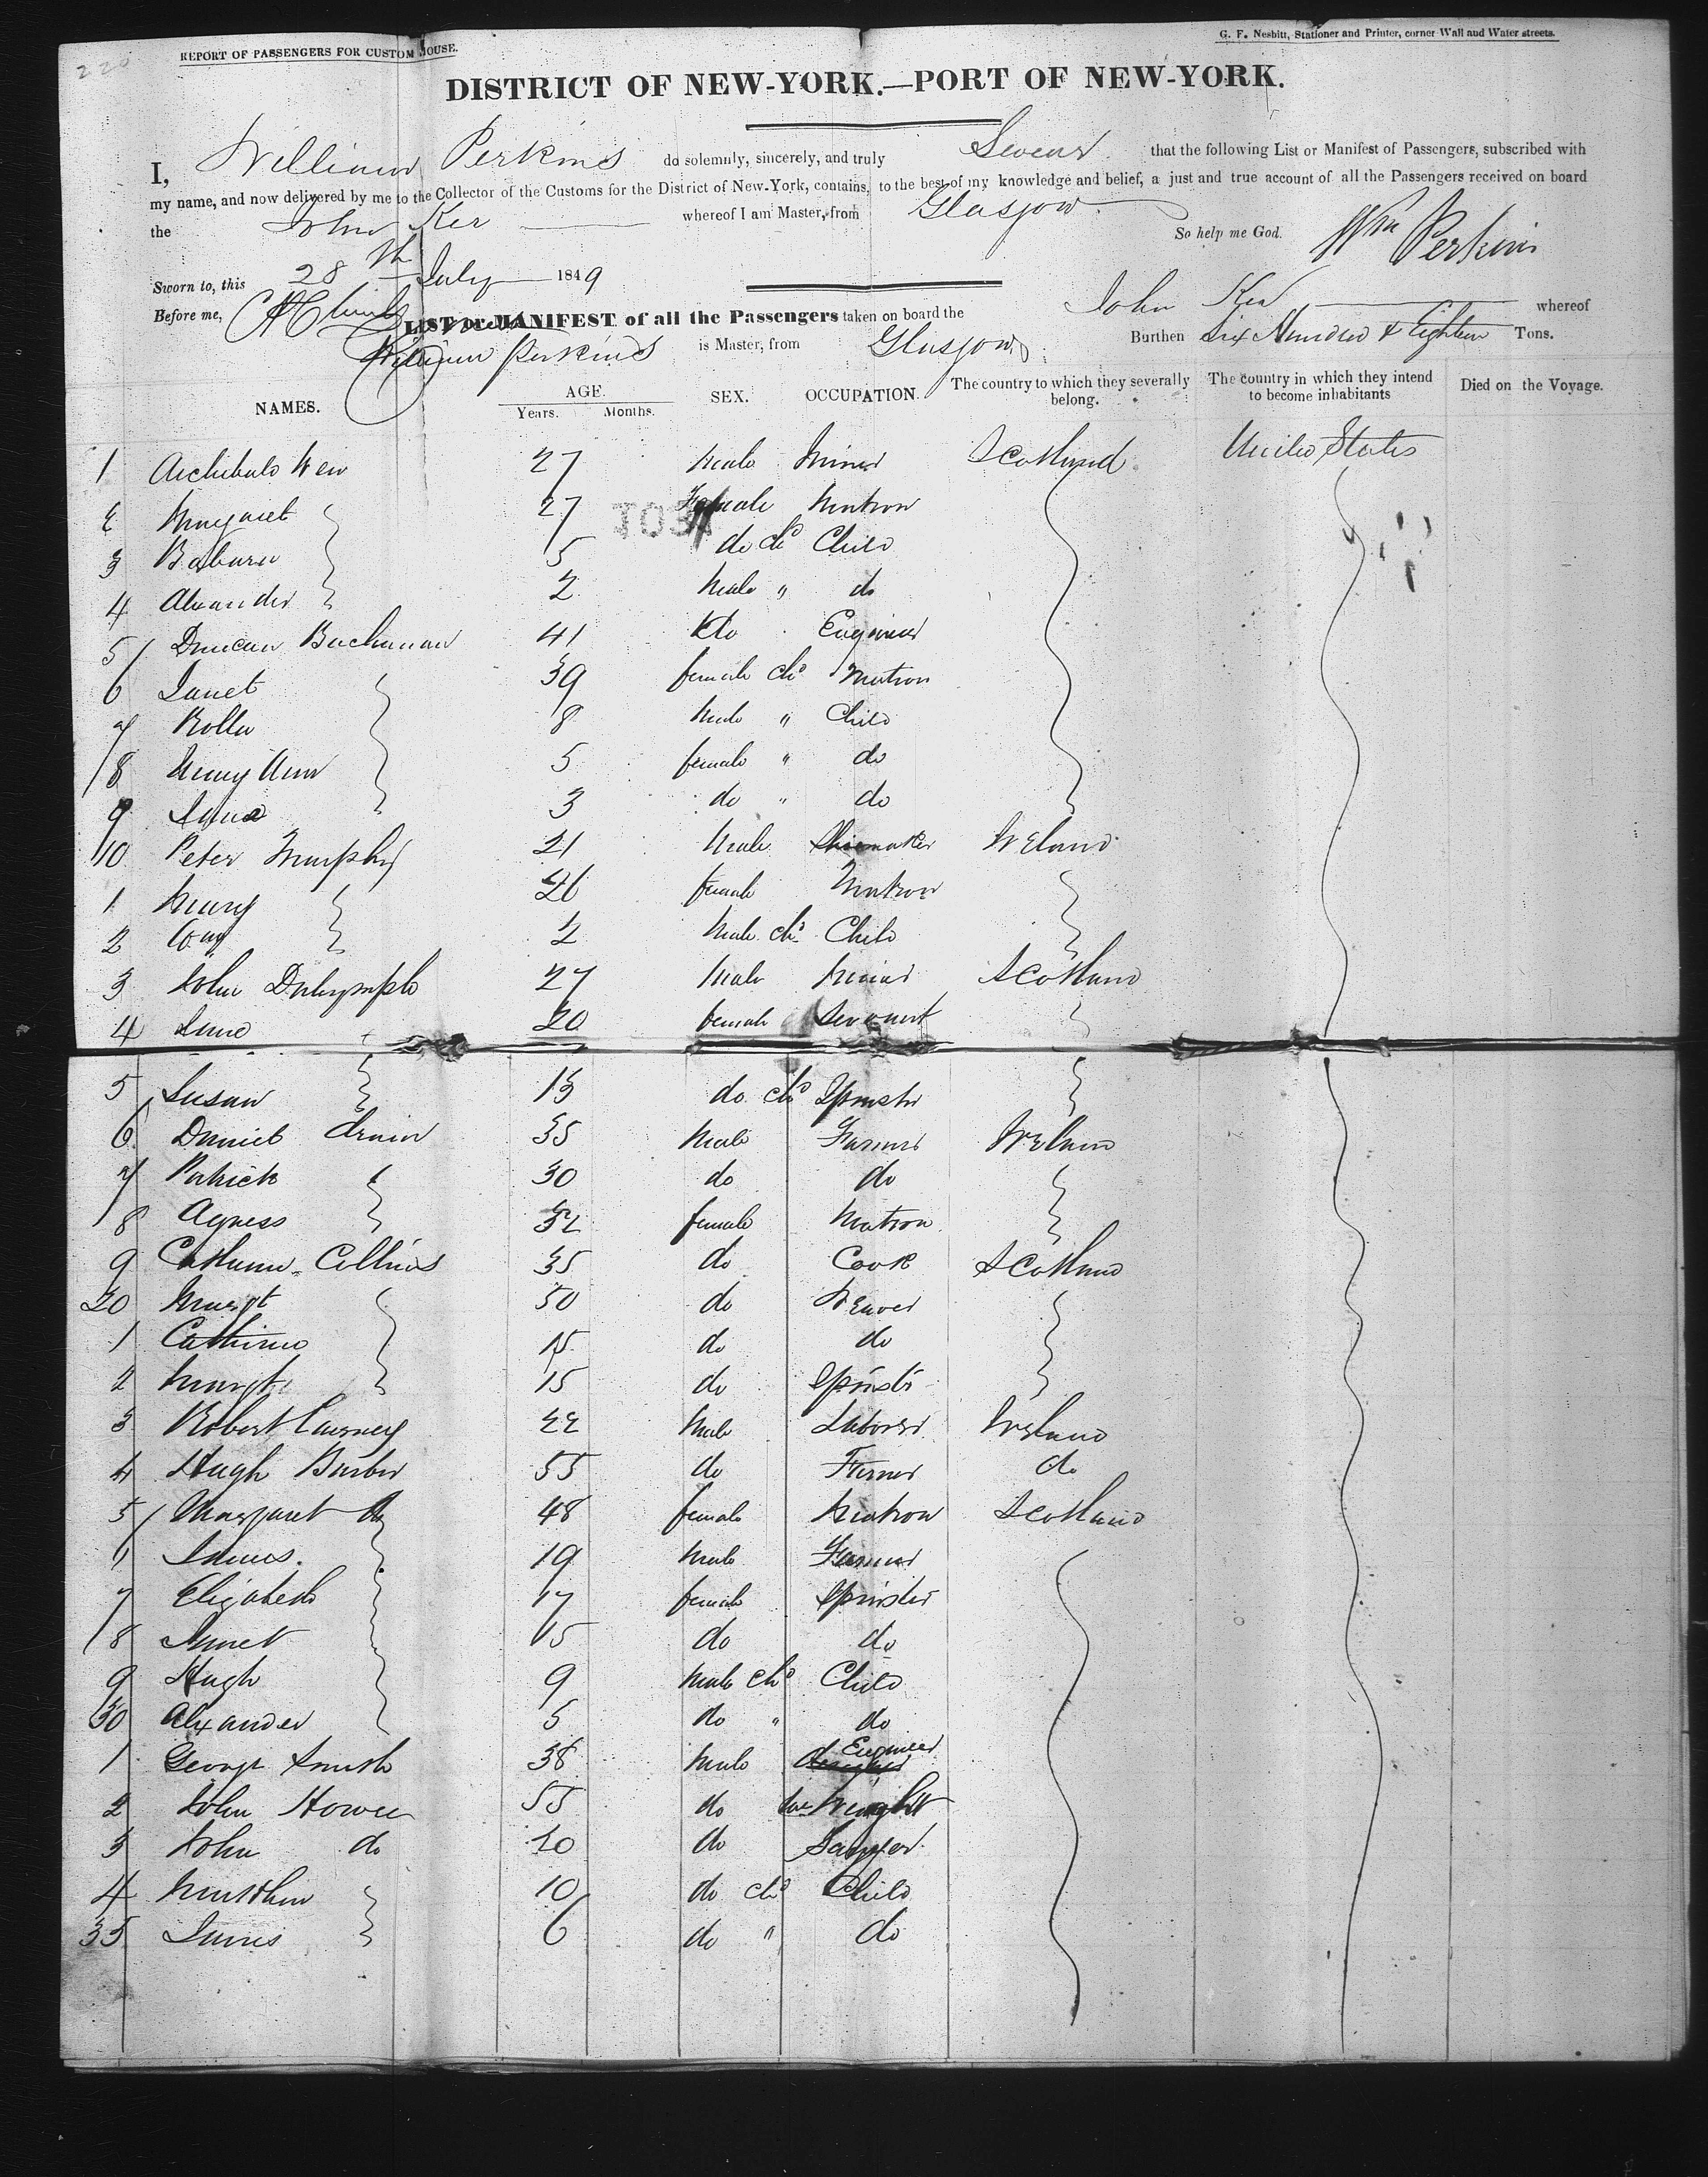 220
REPORT OF PASSENGERS FOR CUSTOM HOUSE.
G. F. Nesbitt, Stationer and Printer, corner Wall and Water streets.
DISTRICT OF NEW-YORK.—PORT OF NEW-YORK.
I, William Perkins do solemnly, sincerely, and truly Swear that the following List or Manifest of Passengers, subscribed with
my name, and now delivered by me to the Collector of the Customs for the District of New-York, contains, to the best of my knowledge and belief, a just and true account of all the Passengers received on board
the John Ker whereof I am Master, from Glasgow
So help me God. Wm Perkins
Sworn to, this 28th July 1849
Before me,
LIST or MANIFEST of all the Passengers taken on board the John Ker whereof
William Perkins is Master, from Glasgow Burthen Six Hundred & Eighteen Tons.
NAMES. AGE. Years. Months. SEX. OCCUPATION. The country to which they severally belong. The country in which they intend to become inhabitants Died on the Voyage.
1 Archibald 27 Male Miner Scotland United States
2 Margaret 27 Female Matron
3 5 do chd Child
4 Alexander 2 Male " do
5 Duncan Buchanan 41 do Engineer
6 Janet 39 female chd Matron
7 8 Male " Child
8 Mary Ann 5 female " do
9 3 do " do
10 Peter Murphy 21 Male Shoemaker Ireland
1 Mary 26 female Matron
2 2 Male chd Child
3 John Dalrymple 27 Male Miner Scotland
4 Jane 20 female Servant
5 Susan 13 do chd Spinster
6 Daniel 35 Male Farmer Ireland
7 Patrick 30 do do
8 Agness 32 female Matron
9 Collins 35 do Cook Scotland
20 Margt 50 do Weaver
1 Catherine 15 do do
2 Margt 15 do Spinster
3 Robert 22 Male Laborer Ireland
4 Hugh 55 do Farmer do
5 Margaret do 48 female Matron Scotland
6 James 19 Male Farmer
7 Elizabeth 17 female Spinster
8 Janet 15 do do
9 Hugh 9 Male chd Child
30 Alexander 5 do " do
1 George Smith 38 Male Engineer
2 John Howie 55 do Wright
3 John do 20 do Sawyer
4 Matthew 10 do chd Child
35 James 6 do " do